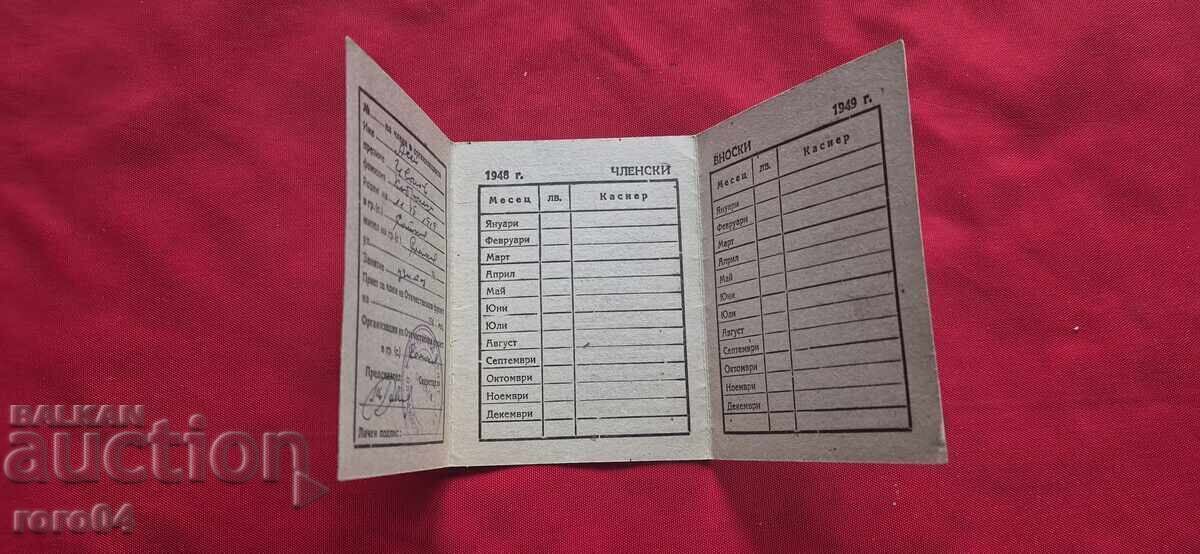 № на члена в организацията
Име
презиме
фамилия
Роден на 11 VI 1919
в гр. (с)
жител на гр. (с)
ул.
Занятие
Приет за член на Отечествения фронт
на
Организация на Отечествения фронт
в гр. (с)
Председател: Секретар:
Личен подпис:
1948 г. ЧЛЕНСКИ
Месец лв. Касиер
Януари
Февруари
Март
Април
Май
Юни
Юли
Август
Септември
Октомври
Ноември
Декември
ВНОСКИ 1949 г.
Месец лв. Касиер
Януари
Февруари
Март
Април
Май
Юни
Юли
Август
Септември
Октомври
Ноември
Декември
BALKAN
auction
roro04